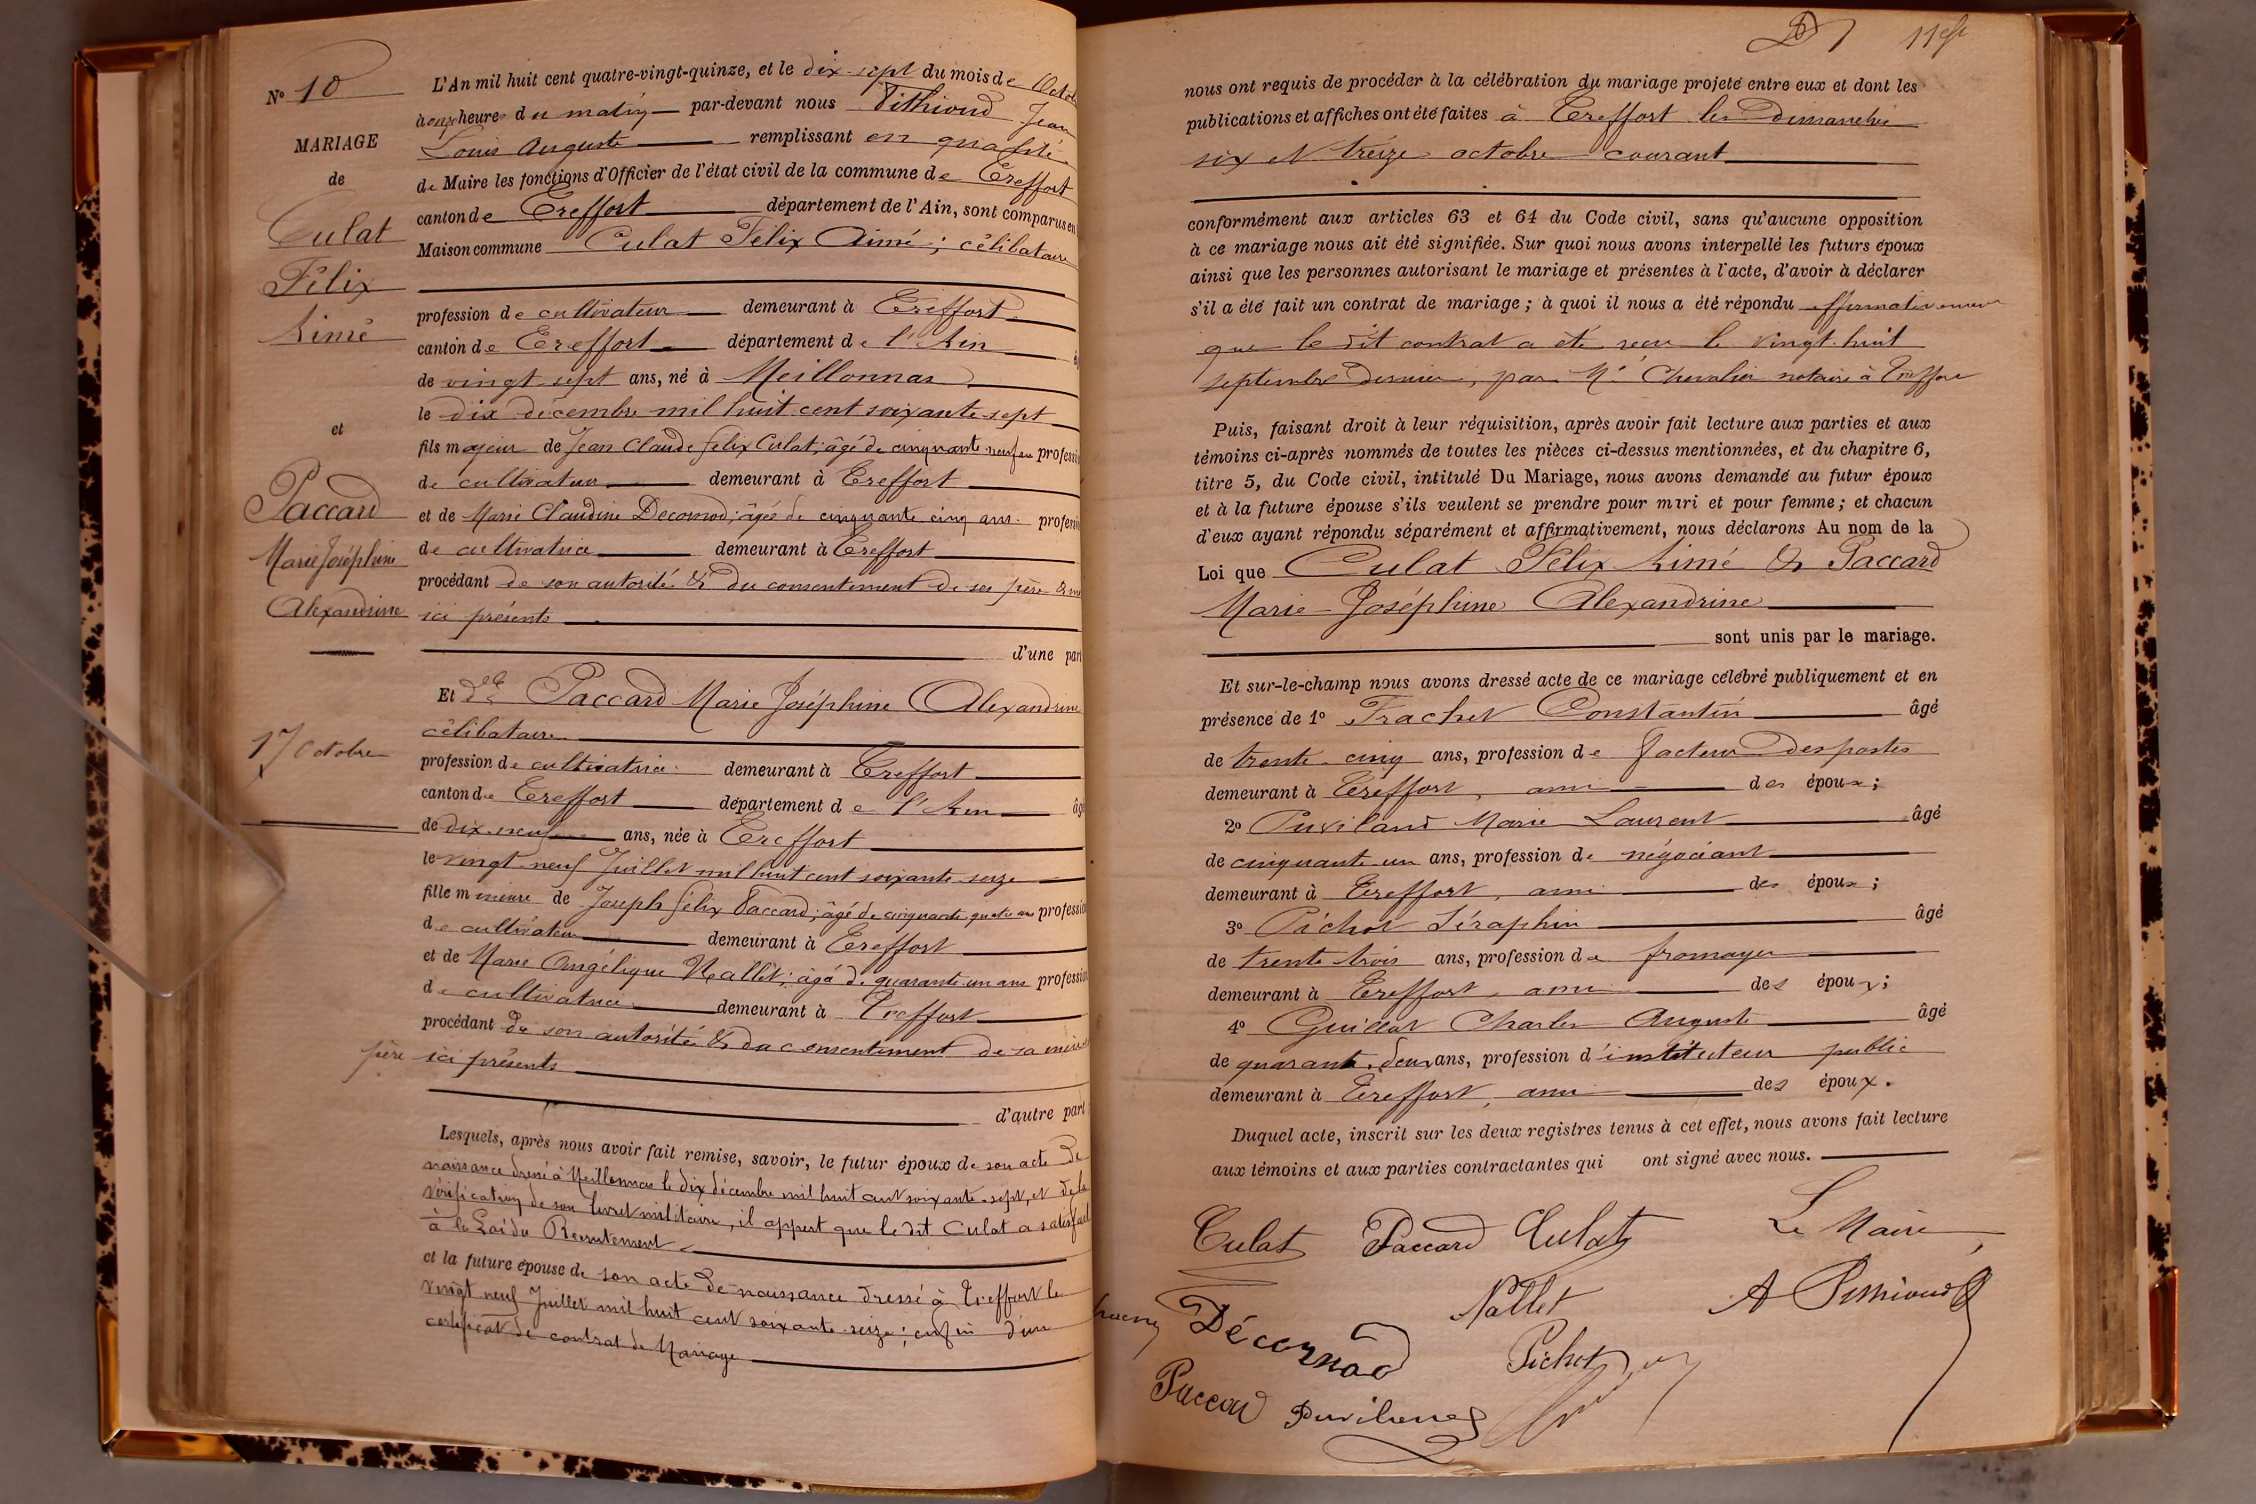 N° 10
MARIAGE
de
Culat
Félix
Aimé
et
Paccard
Marie Joséphine
Alexandrine
17 Octobre
L'An mil huit cent quatre-vingt-quinze, et le dix-sept du mois de Octob
à onze heures du matin par-devant nous Pithioud Jean
Louis Auguste remplissant en qualité
de Maire les fonctions d'Officier de l'état civil de la commune de Treffort
canton de Treffort département de l'Ain, sont comparus en
Maison commune Culat Félix Aimé ; célibataire
profession de cultivateur demeurant à Treffort
canton de Treffort département de l'Ain
de vingt sept ans, né à Meillonnas
le dix décembre mil huit cent soixante-sept
fils majeur de Jean Claude Félix Culat ; âgé de cinquante neuf ans professi
de cultivateur demeurant à Treffort
et de Marie Claudine Decornod ; âgée de cinquante cinq ans professi
de cultivatrice demeurant à Treffort
procédant de son autorité & du consentement de ses père & m
ici présents
d'une part
Et dlle Paccard Marie Joséphine Alexandrine
célibataire
profession de cultivatrice demeurant à Treffort
canton de Treffort département de l'Ain âg
de dix-neuf ans, née à Treffort
le vingt-neuf Juillet mil huit cent soixante seize
fille mineure de Joseph Félix Paccard ; âgé de cinquante quatre ans professio
de cultivateur demeurant à Treffort
et de Marie Angélique Nallet ; âgé de quarante-un ans profession
de cultivatrice demeurant à Treffort
procédant de son autorité & du consentement de sa mère
père ici présents
d'autre part
Lesquels, après nous avoir fait remise, savoir, le futur époux de son acte de
naissance dressé à Meillonnas le dix décembre mil huit cent soixante-sept, et de la
vérification de son livret militaire, il appert que le dit Culat a satisfait
à la Loi du Recrutement
et la future épouse de son acte de naissance dressé à Treffort le
vingt neuf Juillet mil huit cent soixante-seize ; enfin d'un
certificat de contrat de Mariage
11
nous ont requis de procéder à la célébration du mariage projeté entre eux et dont les
publications et affiches ont été faites à Treffort les dimanches
six et treize octobre courant
conformément aux articles 63 et 64 du Code civil, sans qu'aucune opposition
à ce mariage nous ait été signifiée. Sur quoi nous avons interpellé les futurs époux
ainsi que les personnes autorisant le mariage et présentes à l'acte, d'avoir à déclarer
s'il a été fait un contrat de mariage ; à quoi il nous a été répondu affirmativement
que le dit contrat a été reçu le vingt-huit
septembre dernier, par Me Chevalier notaire à Treffort
Puis, faisant droit à leur réquisition, après avoir fait lecture aux parties et aux
témoins ci-après nommés de toutes les pièces ci-dessus mentionnées, et du chapitre 6,
titre 5, du Code civil, intitulé Du Mariage, nous avons demandé au futur époux
et à la future épouse s'ils veulent se prendre pour mari et pour femme ; et chacun
d'eux ayant répondu séparément et affirmativement, nous déclarons Au nom de la
Loi que Culat Félix Aimé & Paccard
Marie-Joséphine Alexandrine
sont unis par le mariage.
Et sur-le-champ nous avons dressé acte de ce mariage célébré publiquement et en
présence de 1° Frachet Constantin âgé
de trente-cinq ans, profession de facteur des postes
demeurant à Treffort, ami des époux ;
2° Puviland Marie Laurent âgé
de cinquante un ans, profession de négociant
demeurant à Treffort, ami des époux ;
3° Pichot Séraphin âgé
de trente-trois ans, profession de fromager
demeurant à Treffort, ami des époux ;
4° Guillot Charles Auguste âgé
de quarante-deux ans, profession d'instituteur public
demeurant à Treffort, ami des époux.
Duquel acte, inscrit sur les deux registres tenus à cet effet, nous avons fait lecture
aux témoins et aux parties contractantes qui ont signé avec nous.
Culat Paccard Culat Le Maire,
Nallet A Pithioud
Décornod Pichot
Paccard Puviland